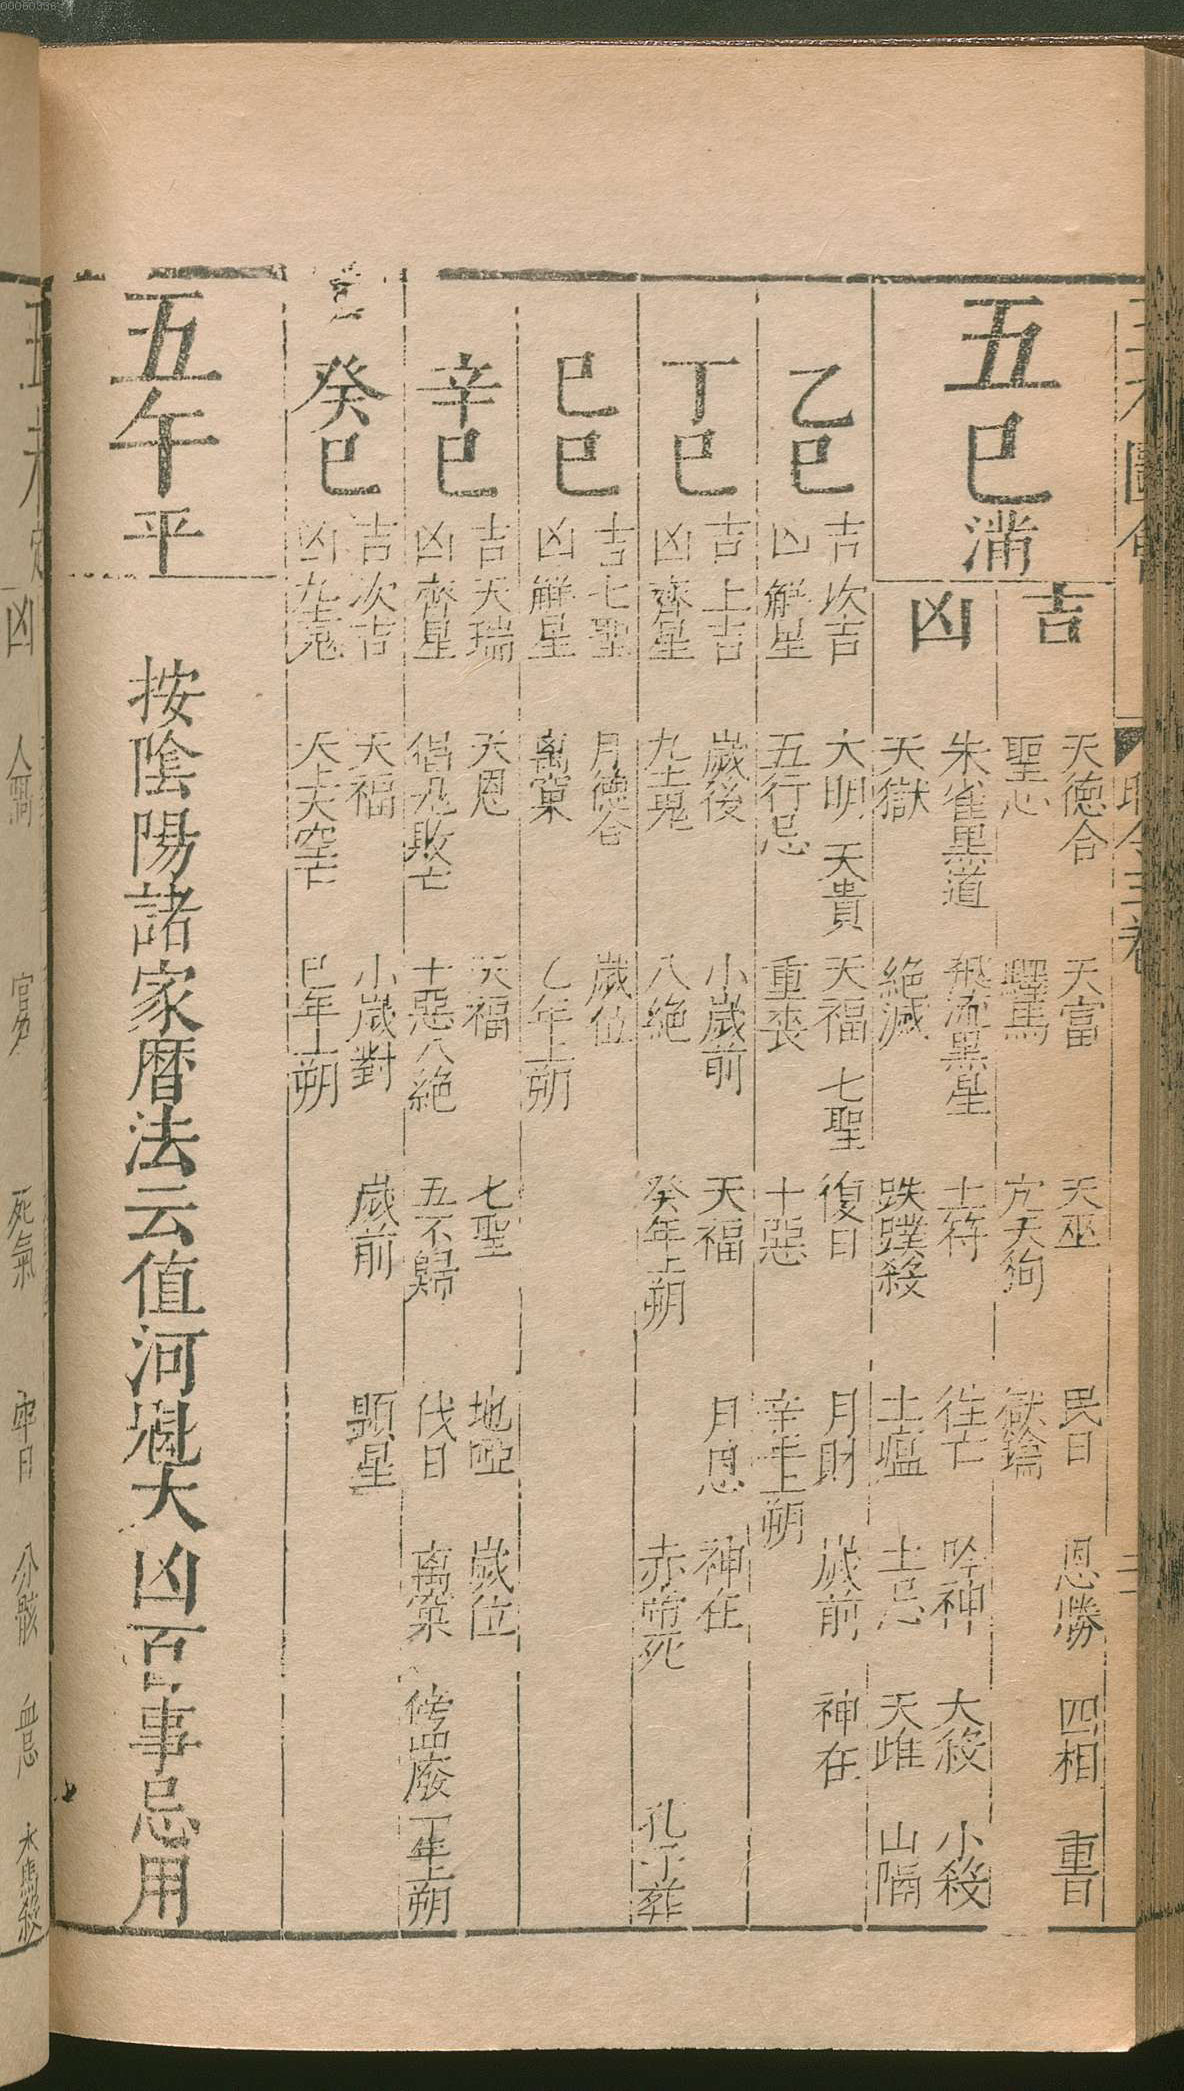 五巳滿
吉 天德合 天富 天巫 民日 恩勝 四相 重日
聖心 驛馬
凶 朱雀黑道 飛流黑星 土符 往亡 吟神 大殺 小殺
天獄 絕滅 土瘟 土忌 山隔
乙巳 吉 次吉 大明 天貴 天福 七聖 復日 月財 歲前 神在
凶 解星 五行忌 重喪 十惡 辛年上朔
丁巳 吉 上吉 歲後 小歲前 天福 月恩 神在
凶 齊星 九土鬼 八絕 癸年上朔
己巳 吉 七聖 月德合 歲位
凶 解星 離窠 乙年上朔
辛巳 吉 天瑞 天恩 天福 七聖 地啞 歲位
凶 齊星 十惡 八絕 五不歸 伐日 离窠
癸巳 吉 次吉 天福 小歲對 歲前 顯星
凶 九土鬼 天上大空亡 巳年上朔
五午平
按陰陽諸家曆法云值河魁大凶百事忌用
凶
死氣
血忌